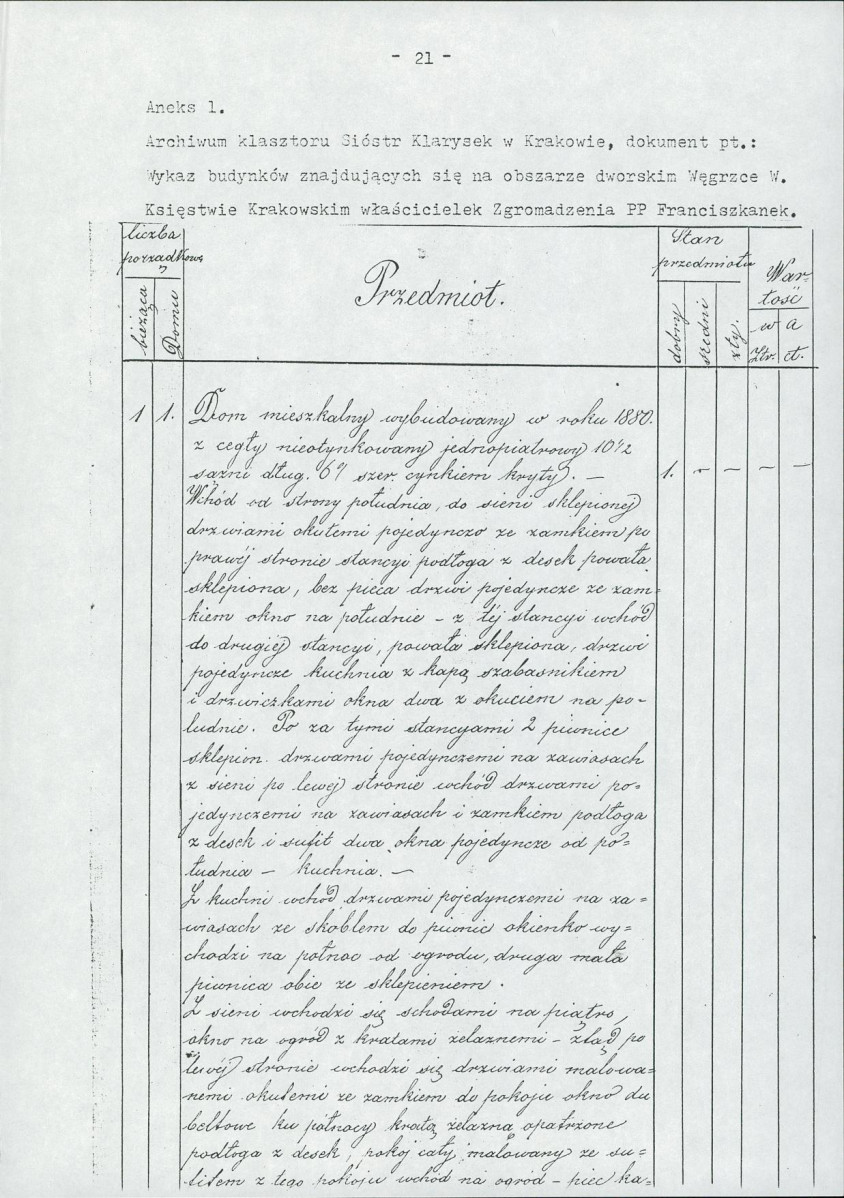 - 21 -
Aneks 1.
Archiwum klasztoru Sióstr Klarysek w Krakowie, dokument pt.:
Wykaz budynków znajdujących się na obszarze dworskim Węgrzce W.
Księstwie Krakowskim właścicielek Zgromadzenia PP Franciszkanek.
liczba
porządkową
bieżąca
Domu
Przedmiot.
Stan
przedmiotu
dobry
średni
zły.
War-
tość
w a
Ztr. ct.
1 1. Dom mieszkalny wybudowany w roku 1880.
z cegły nieotynkowany jednopiątrowy 10 1/2
sążni dług. 6 szer. cynkiem kryty. — 1. — — — —
Wchód od strony południa, do sieni sklepionej
drzwiami okutemi pojedynczo ze zamkiem po
prawéj stronie stancyi podłoga z desek powała
sklepiona, bez pieca drzwi pojedyncze ze zam=
kiem okno na południe - z téj stancyi wchód
do drugiéj stancyi, powała sklepiona, drzwi
pojedyncze kuchnia z kapą szabasnikiem
i drzwiczkami okna dwa z okuciem na po-
ludnie. Po za tymi stancyami 2 piwnice
sklepion. drzwami pojedynczemi na zawiasach
z sieni po lewej stronie wchód drzwami po=
jedynczemi na zawiasach i zamkiem podłoga
z desek i sufit dwa okna pojedyncze od po=
łudnia — kuchnia. —
Z kuchni wchód drzwami pojedynczemi na za=
wiasach ze skoblem do piwnic okienko wy=
chodzi na połnoc od ogrodu, druga mała
piwnica obie ze sklepieniem.
Z sieni wchodzi się schodami na piątro,
okno na ogród z kratami żelaznemi - ztąd po
lewéj stronie wchodzi się drzwiami malowa=
nemi okutemi ze zamkiem do pokoju okno du
beltowe ku północy kratą żelazną opatrzone
podłoga z desek, pokój cały malowany ze su-
fitem z tego pokoju wchód na ogród - piec ka-